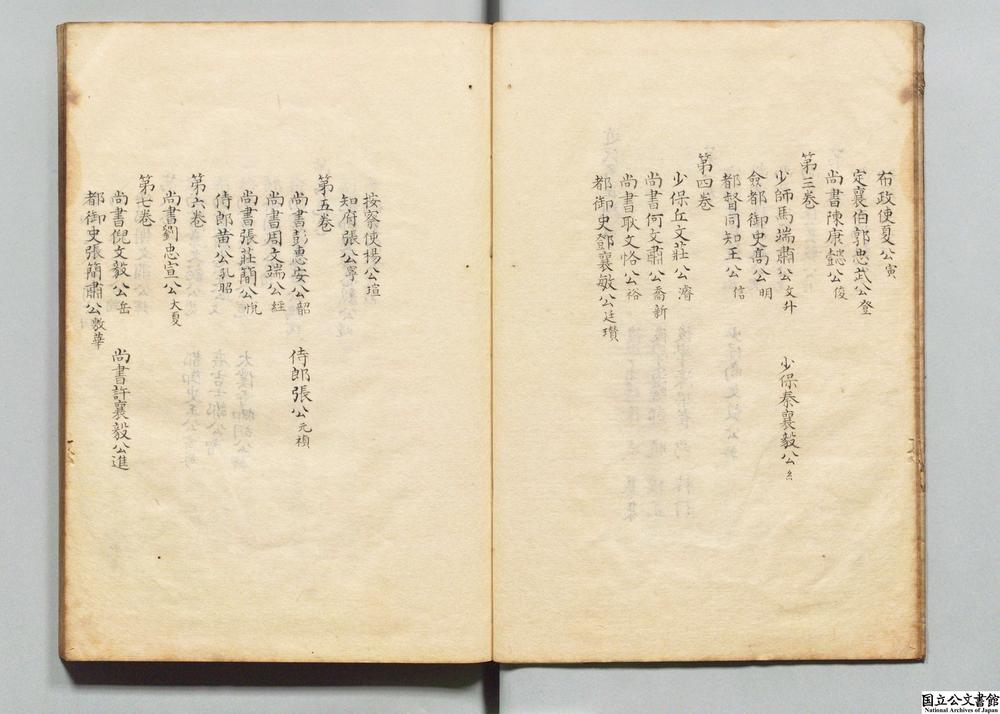 布政使夏公寅
定襄伯郭忠武公登
尚書陳康懿公俊
第三卷
少師馬端肅公文升 少保秦襄毅公
僉都御史高公明
都督同知王公信
第四卷
少保丘文莊公濬
尚書何文肅公喬新
尚書耿文恪公裕
都御史鄧襄敏公廷瓚
按察使楊公瑄
知府張公寧
第五卷
尚書彭惠安公韶 侍郎張公元禎
尚書周文端公經
尚書張莊簡公悅
侍郎黃公孔昭
第六卷
尚書劉忠宣公大夏
第七卷
尚書倪文毅公岳 尚書許襄毅公進
都御史張簡肅公敷華
国立公文書館
National Archives of Japan